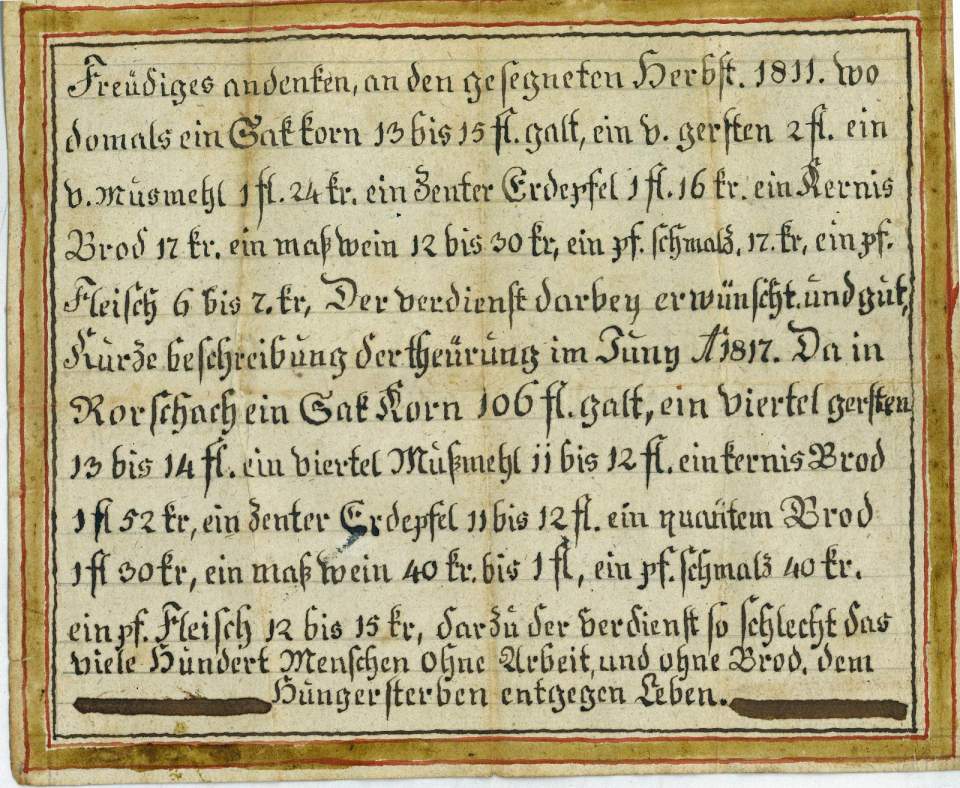 Freüdiges andenken, an den gesegneten Herbst. 1811. wo
domals ein Sak korn 13 bis 15 fl. galt, ein v. gersten 2 fl. ein
v. Müsmehl 1 fl. 24 kr. ein Zenter Erdepfel 1 fl. 16 kr. ein Kernis
Brod 17 kr. ein maß wein 12 bis 30 kr, ein pf. schmalz. 17. kr, ein pf.
Fleisch 6 bis 7. kr, Der verdienst darbey erwünscht. und gut,
Kürze beschreibung der theürung im Juny Aͦ 1817. Da in
Rorschach ein Sak Korn 106 fl. galt, ein viertel gersten
13 bis 14 fl. ein viertel Mußmehl 11 bis 12 fl. ein kernis Brod
1 fl 52 kr, ein Zenter Erdepfel 11 bis 12 fl. ein Brod
1 fl 30 kr, ein maß wein 40 kr. bis 1 fl, ein pf. schmalz 40 kr.
ein pf. Fleisch 12 bis 15 kr, darzu der verdienst so schlecht das
viele Hundert Menschen ohne Arbeit, und ohne Brod, dem
Hungersterben entgegen Leben.